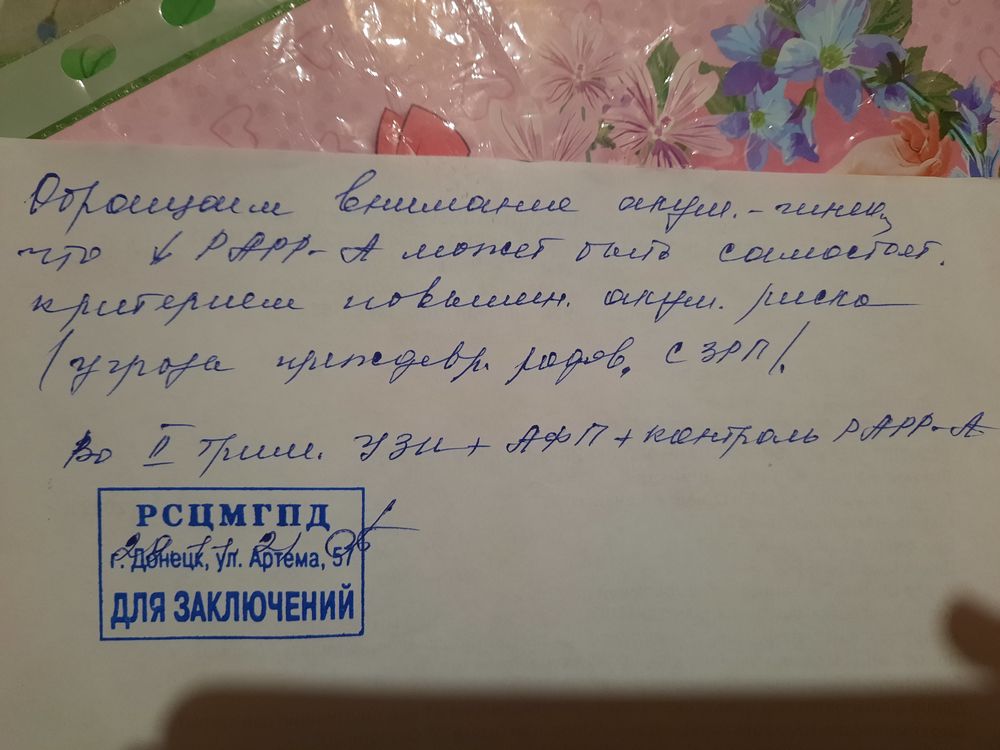 Обращаем внимание акуш.-гинек,
что ↓ PAPP-A может быть самостоят.
критерием повышен. акуш. риска
/угроза преждевр. родов, СЗРП/.
Во II трим. УЗИ + АФП + контроль PAPP-A
РСЦМГПД
29.11.21
г. Донецк, ул. Артема, 57
ДЛЯ ЗАКЛЮЧЕНИЙ